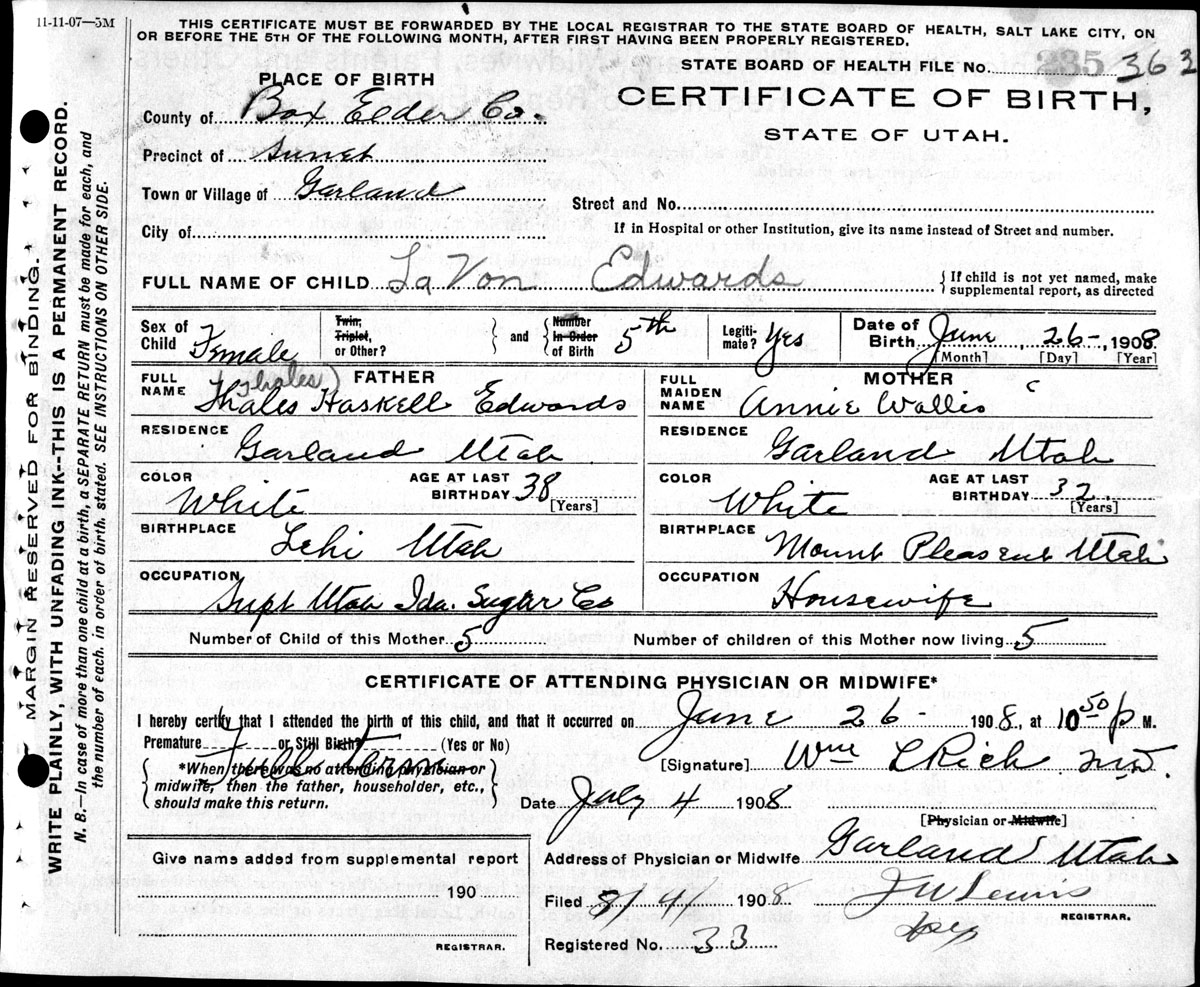 11-11-07-5M
THIS CERTIFICATE MUST BE FORWARDED BY THE LOCAL REGISTRAR TO THE STATE BOARD OF HEALTH, SALT LAKE CITY, ON
OR BEFORE THE 5TH OF THE FOLLOWING MONTH, AFTER FIRST HAVING BEEN PROPERLY REGISTERED.
STATE BOARD OF HEALTH FILE No. 235 363
PLACE OF BIRTH
CERTIFICATE OF BIRTH,
STATE OF UTAH.
County of Box Elder Co.
Precinct of Sunset
Town or Village of Garland
Street and No.
City of
If in Hospital or other Institution, give its name instead of Street and number.
FULL NAME OF CHILD La Von Edwards
{ If child is not yet named, make
supplemental report, as directed
Sex of Child Female
Twin, Triplet, or Other?
and
Number In Order of Birth 5th
Legiti-mate? Yes
Date of Birth June 26-, 1908
[Month] [Day] [Year]
FATHER
FULL NAME (Thales) Thales Haskell Edwards
RESIDENCE Garland Utah
COLOR White
AGE AT LAST BIRTHDAY 38 [Years]
BIRTHPLACE Lehi Utah
OCCUPATION Supt Utah Ida. Sugar Co
MOTHER
FULL MAIDEN NAME Annie Wallis
RESIDENCE Garland Utah
COLOR White
AGE AT LAST BIRTHDAY 32 [Years]
BIRTHPLACE Mount Pleasent Utah
OCCUPATION Housewife
Number of Child of this Mother 5
Number of children of this Mother now living 5
CERTIFICATE OF ATTENDING PHYSICIAN OR MIDWIFE*
I hereby certify that I attended the birth of this child, and that it occurred on June 26- 1908, at 10 50 p M.
Premature or Still Birth? (Yes or No)
Full Term
*When there was no attending physician or
midwife, then the father, householder, etc.,
should make this return.
[Signature] Wm L Rich M.D.
Date July 4 1908
[Physician or Midwife]
Give name added from supplemental report
190
REGISTRAR.
Address of Physician or Midwife Garland Utah
Filed 8/4/ 1908
J W Lewis
REGISTRAR.
Dep
Registered No. 33
MARGIN RESERVED FOR BINDING.
WRITE PLAINLY, WITH UNFADING INK--THIS IS A PERMANENT RECORD.
N. B.—In case of more than one child at a birth, a SEPARATE RETURN must be made for each, and
the number of each, in order of birth, stated. SEE INSTRUCTIONS ON OTHER SIDE.